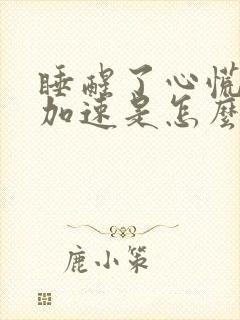 睡醒了心慌
加速是怎麼
鹿小策